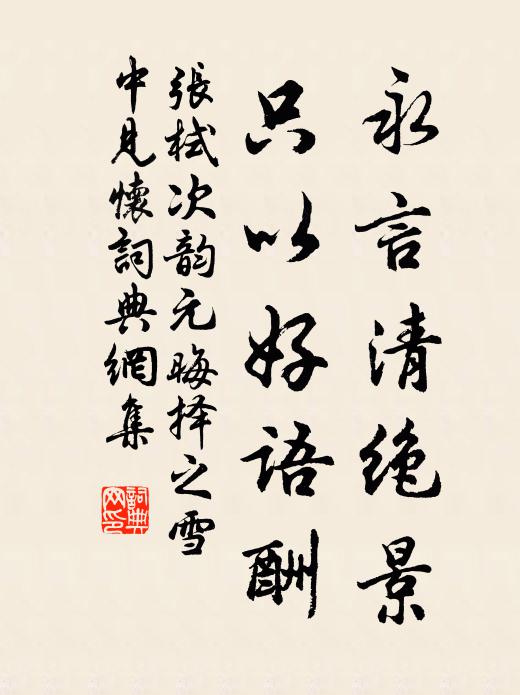 永言清绝景
只以好語酬
張栻次韵元晦择之雪
中見懷詞典網集
詞典网印